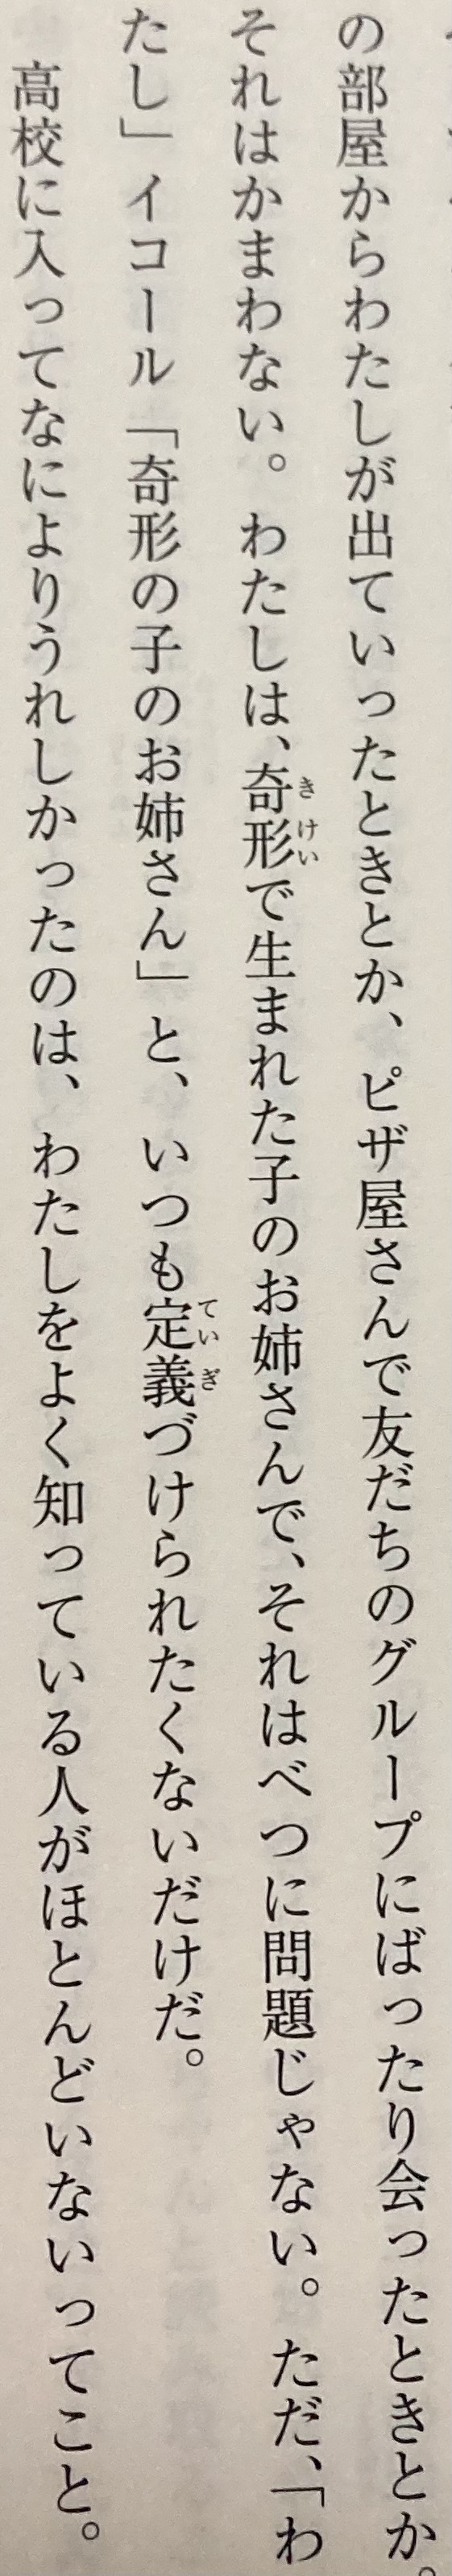 の部屋からわたしが出ていったときとか、ピザ屋さんで友だちのグループにばったり会ったときとか。
それはかまわない。わたしは、奇形で生まれた子のお姉さんで、それはべつに問題じゃない。ただ、「わ
たし」イコール「奇形の子のお姉さん」と、いつも定義づけられたくないだけだ。
高校に入ってなによりうれしかったのは、わたしをよく知っている人がほとんどいないってこと。